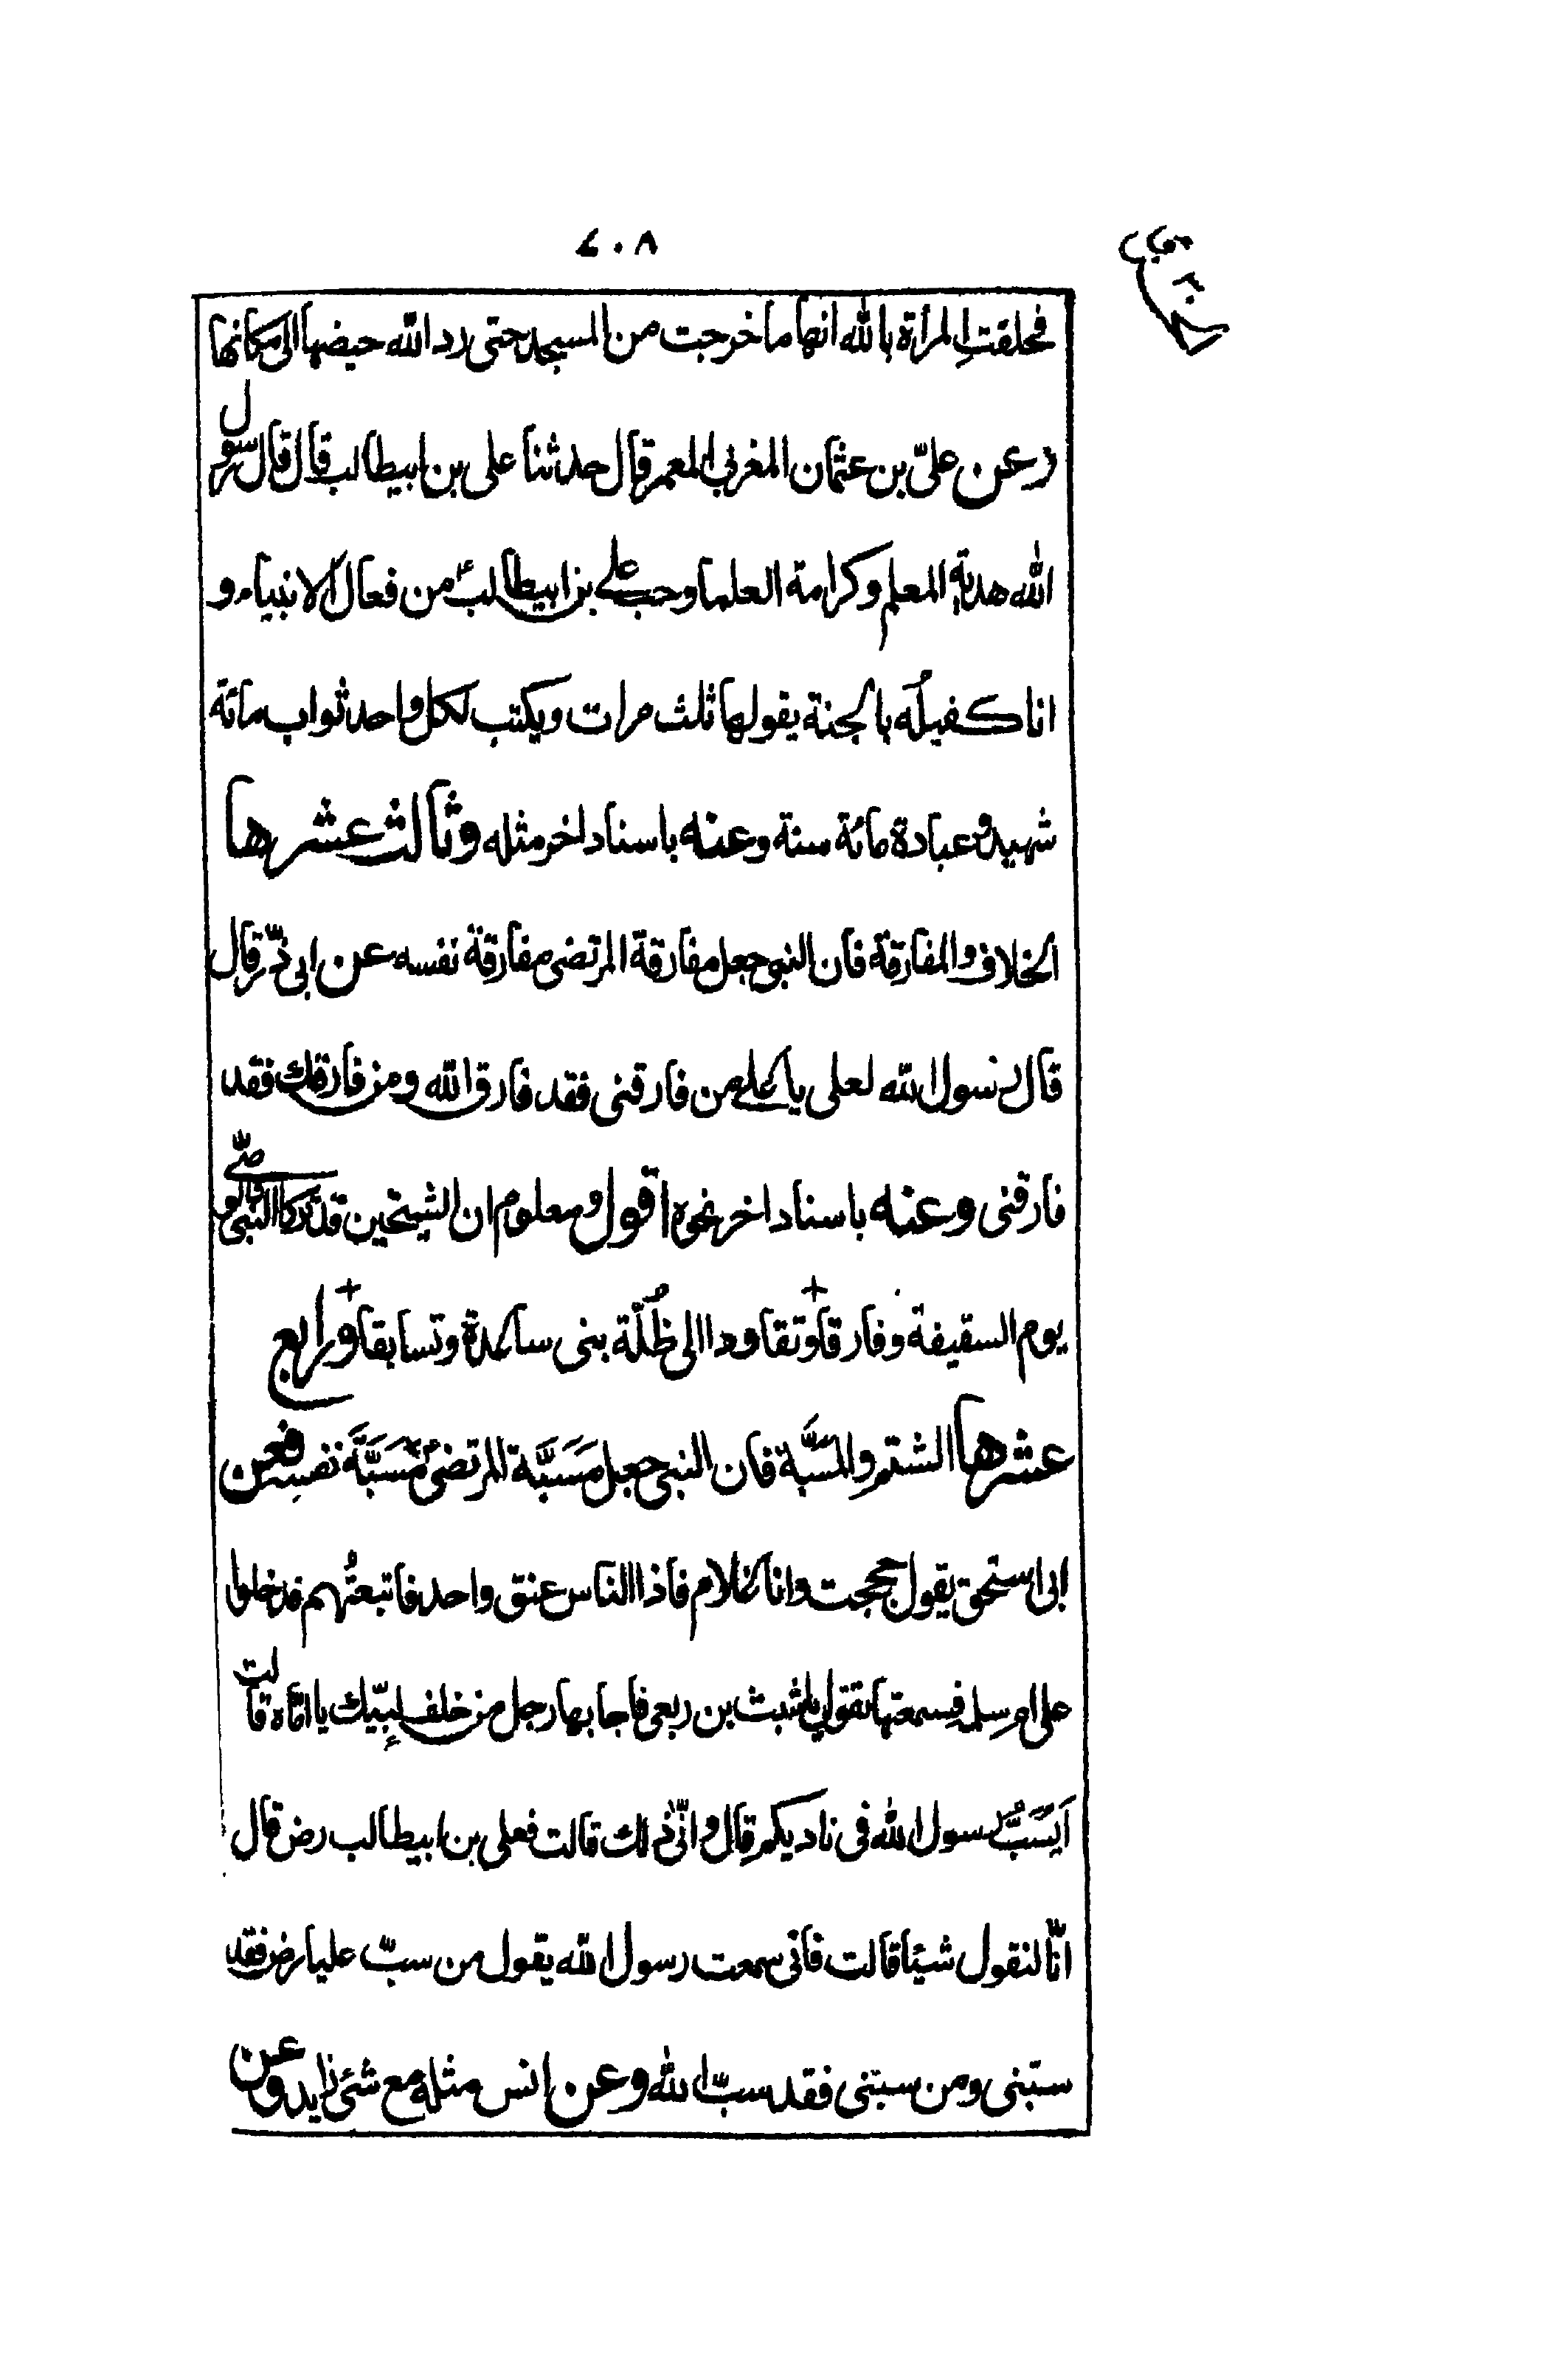 ٤٠٨
فحلفت المرأة بالله انها ما خرجت من المسجد حتى رد الله حيضها الى مكانها
وعن علىّ بن عثمان المغربي المعمر قال حدثنا على بن ابيطالب قال قال رسول
الله هدية المعلم وكرامة العلما وحب على بن ابيطالب من فعال الانبياء و
انا كفيلُه بالجنة يقولها ثلث مرات ويكتب لكل واحد ثواب مائة
شهيد وعبادة مائة سنة وعنه باسناد اخر مثله وثالث عشرها
الخلاف والمفارقة فان النبى جعل مفارقة المرتضى مفارقة نفسه عن ابى ذرّ قال
قال رسول الله لعلى يا على من فارقنى فقد فارق الله ومن فارقك فقد
فارقنى وعنه باسناد اخر نحوه اقول ومعلوم ان الشيخين قد تركا النبى
يوم السقيفة وفارقا وتقاودا الى ظُلّة بنى ساعدة وتسابقا ورابع
عشرها الشتم والمسَبَّة فان النبى جعل مَسَبَّة المرتضى مَسَبَّة نفسه فعن
ابى اسحق يقول حججت وانا غلام فاذا الناس عنق واحد فاتبعتُهم فدخلوا
على ام سلمه فسمعتها تقول يا شبث بن ربعى فاجابها رجل من خلف لبّيك يا امّاه قالت
اَيُسَبُّ رسول الله فى ناديكم قال وانّى ذلك قالت فعلى بن ابيطالب رض قال
انّا لنقول شيئا قالت فانى سمعت رسول الله يقول من سبّ عليا رض فقد
سبّنى ومن سبّنى فقد سبّ الله وعن انس مثله مع شئ زايد وعن